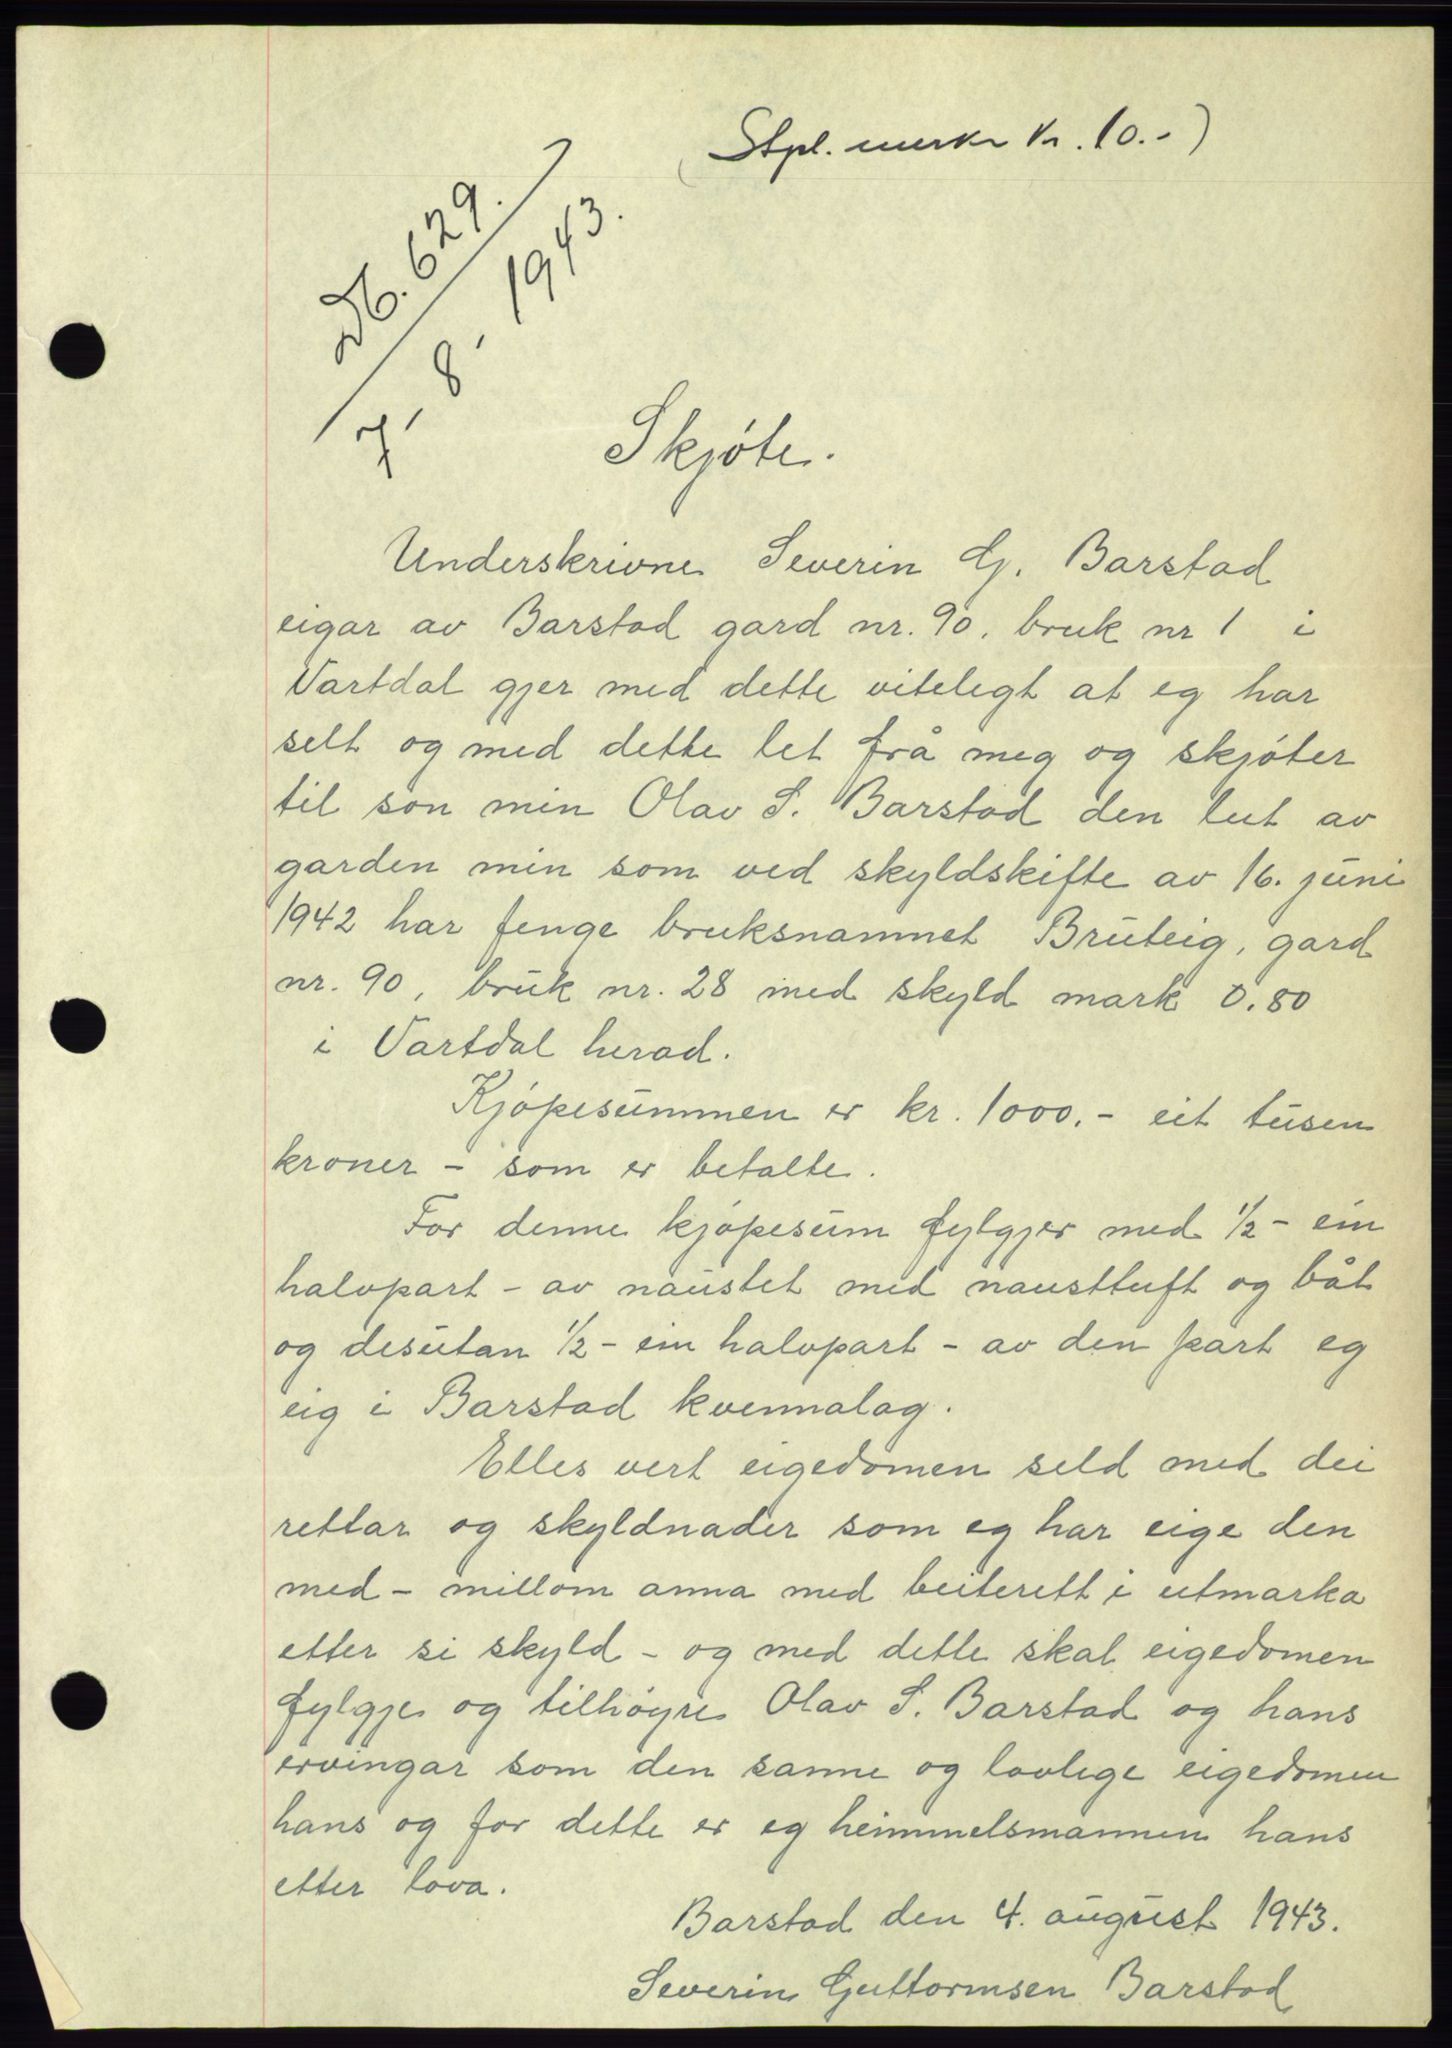 (Stpl. merke Kr. 10.-)
Db. 629.
7, 8, 1943.
Skjóte.
Underskrivne Severin G. Barstad
eigar av Barstad gard nr. 90, bruk nr 1 i
Vartdal gjer med dette vitelegt at eg har
selt og med dette let frå meg og skjóter
til son min Olav S. Barstad den lut av
garden min som ved skyldskifte av 16. juni
1942 har fenge bruksnamnet Bruteig, gard
nr. 90, bruk nr. 28 med skyld mark 0.80
i Vartdal herad.
Kjópesummen er kr. 1000.- eit tusen
kroner - som er betalte.
For denne kjópesum fylgjer med 1/2 - ein
halvpart - av naustet med nausttuft og båt
og desutan 1/2 - ein halvpart - av den part eg
eig i Barstad kvennalag.
Elles vert eigedomen seld med dei
rettar og skyldnader som eg har eige den
med - millom anna med beiterett i utmarka
etter si skyld - og med dette skal eigedomen
fylgje og tilhóyre Olav S. Barstad og hans
ervingar som den sanne og lovlege eigedomen
hans og for dette er eg heimmelsmannen hans
etter lova.
Barstad den 4. august 1943.
Severin Guttormsen Barstad